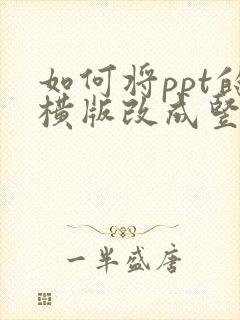 如何将ppt的
横版改成竖
一半盛唐